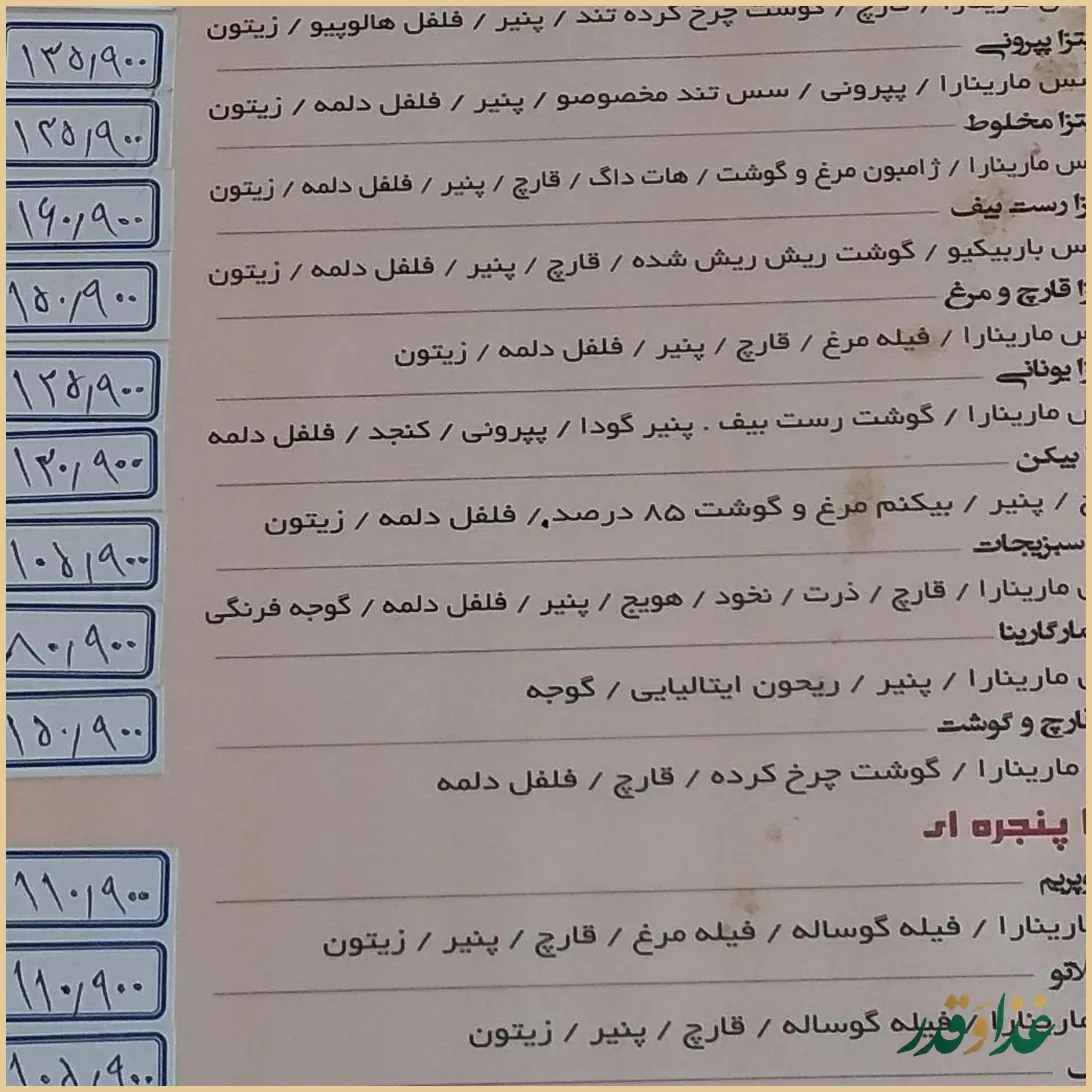 مارینارا / قارچ / گوشت چرخ کرده تند / پنیر / فلفل هالوپیو / زیتون
پپرونی ۱۳۵,۹۰۰
مارینارا / پپرونی / سس تند مخصوصو / پنیر / فلفل دلمه / زیتون
مخلوط ۱۲۵,۹۰۰
مارینارا / ژامبون مرغ و گوشت / هات داگ / قارچ / پنیر / فلفل دلمه / زیتون
رست بیف ۱۶۰,۹۰۰
باربیکیو / گوشت ریش ریش شده / قارچ / پنیر / فلفل دلمه / زیتون
قارچ و مرغ ۱۵۰,۹۰۰
مارینارا / فیله مرغ / قارچ / پنیر / فلفل دلمه / زیتون
یونانی ۱۲۵,۹۰۰
مارینارا / گوشت رست بیف . پنیر گودا / پپرونی / کنجد / فلفل دلمه
بیکن ۱۳۰,۹۰۰
/ پنیر / بیکنم مرغ و گوشت ۸۵ درصد / فلفل دلمه / زیتون
سبزیجات ۱۰۵,۹۰۰
مارینارا / قارچ / ذرت / نخود / هویج / پنیر / فلفل دلمه / گوجه فرنگی
مارگارینا ۸۰,۹۰۰
مارینارا / پنیر / ریحون ایتالیایی / گوجه
و گوشت ۱۵۰,۹۰۰
مارینارا / گوشت چرخ کرده / قارچ / فلفل دلمه
پنجره ای
۱۱۰,۹۰۰
مارینارا / فیله گوساله / فیله مرغ / قارچ / پنیر / زیتون
۱۱۰,۹۰۰
مارینارا / فیله گوساله / قارچ / پنیر / زیتون
۱۰۵,۹۰۰
غذا و قدر